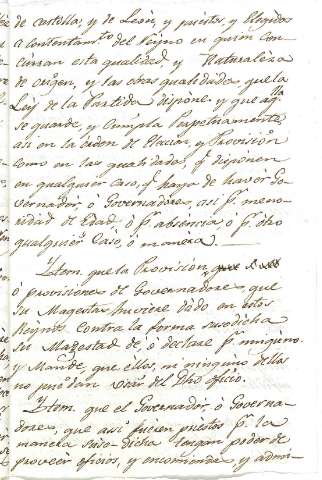 de castilla, y de Leon, y puestos, y Elegidos
a contentam.to del Reyno en quien con-
curran esta qualidad, y Naturaleza
de origen, y las otras qualidades que la
Ley de la Partida dispone y que aq.lla
se guarde, y Cumpla Perpetuamente
asi en la orden de Eleccion, y Provision
como en las qualidades, q.e disponen
en qualquier caso, q.e haya de haver Go-
vernador, ò Governadores, asi p.r meno-
ridad de Edad ò p.r absencia ò p.r otro
qualquier Caso, ò manera.
Ytem. que la Provision,
ò provisiones de Governadores que
su Magestad huviere dado en estos
Reynos contra la forma susodicha
su Magestad de, ò declare p.r ninguno
y Mande, que ellos, ni ninguno dellos
no puedan usar del dho oficio.
Ytem. que el Governador, ò Governa-
dores, que asi fueren puestos p.r la
manera suso-dicha tengan poder de
proveer oficios, y encomiendas, y admi-